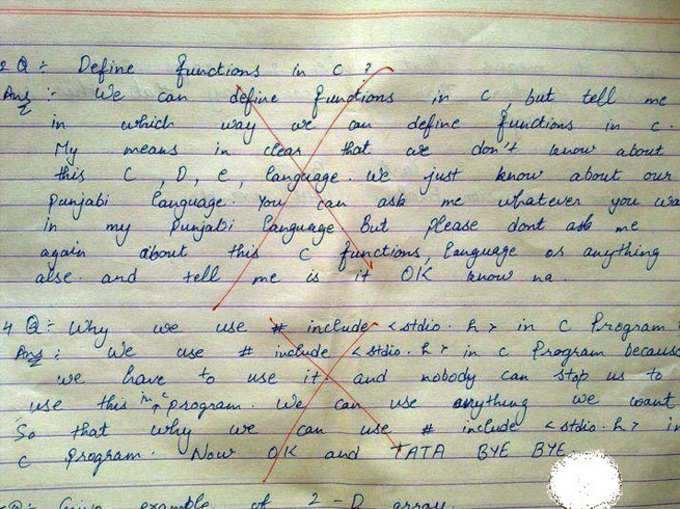 2 Q :- Define functions in C ?
Ans :- We can define functions in C, but tell me
in which way we can define functions in C.
My means in clear that we don't know about
this C, D, e, language. We just know about our
Punjabi language. You can ask me whatever you wa
in my Punjabi language But please dont ask me
again about this C functions, language or anything
alse. and tell me is it OK know na.
4 Q :- Why we use # include <stdio.h> in C Program
Ans :- We use # include <stdio.h> in C Program because
we have to use it. and nobody can stop us to
use this in C program. We can use anything we want
So that why we can use # include <stdio.h> in
C program. Now OK and TATA BYE BYE
Q :- Give example of 2-D array.